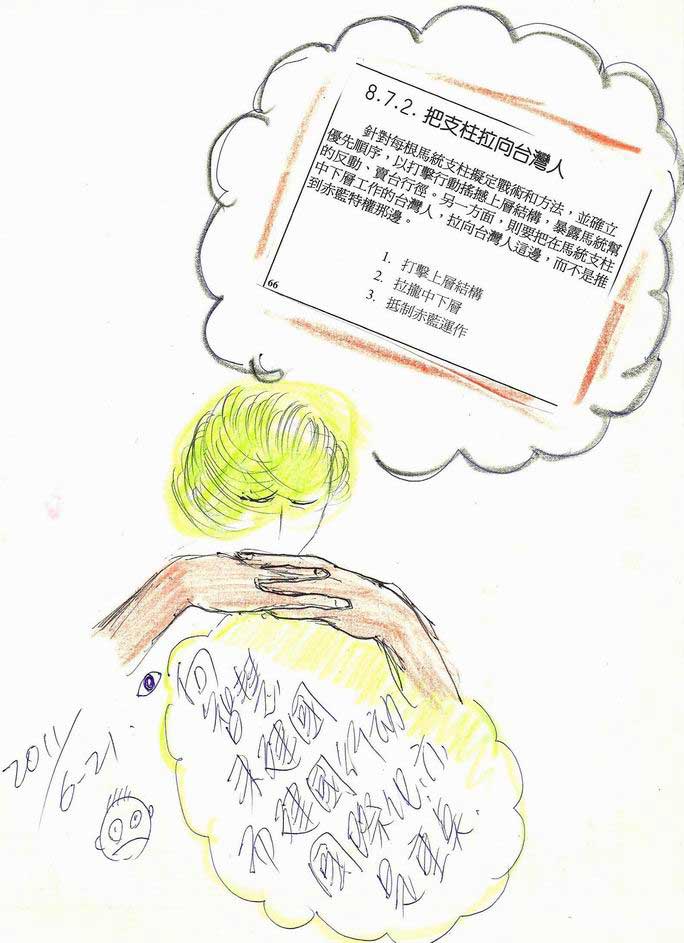 8.7.2. 把支柱拉向台灣人
針對每根馬統支柱擬定戰術和方法，並確立
優先順序，以打擊行動搖撼上層結構，暴露馬統幫
的反動、賣台行徑。另一方面，則要把在馬統支柱
中下層工作的台灣人，拉向台灣人這邊，而不是推
到赤藍特權那邊。
1. 打擊上層結構
2. 拉攏中下層
3. 抵制赤藍運作
66
智慧
未建國
建國行動
國際化
2011/
6-21.